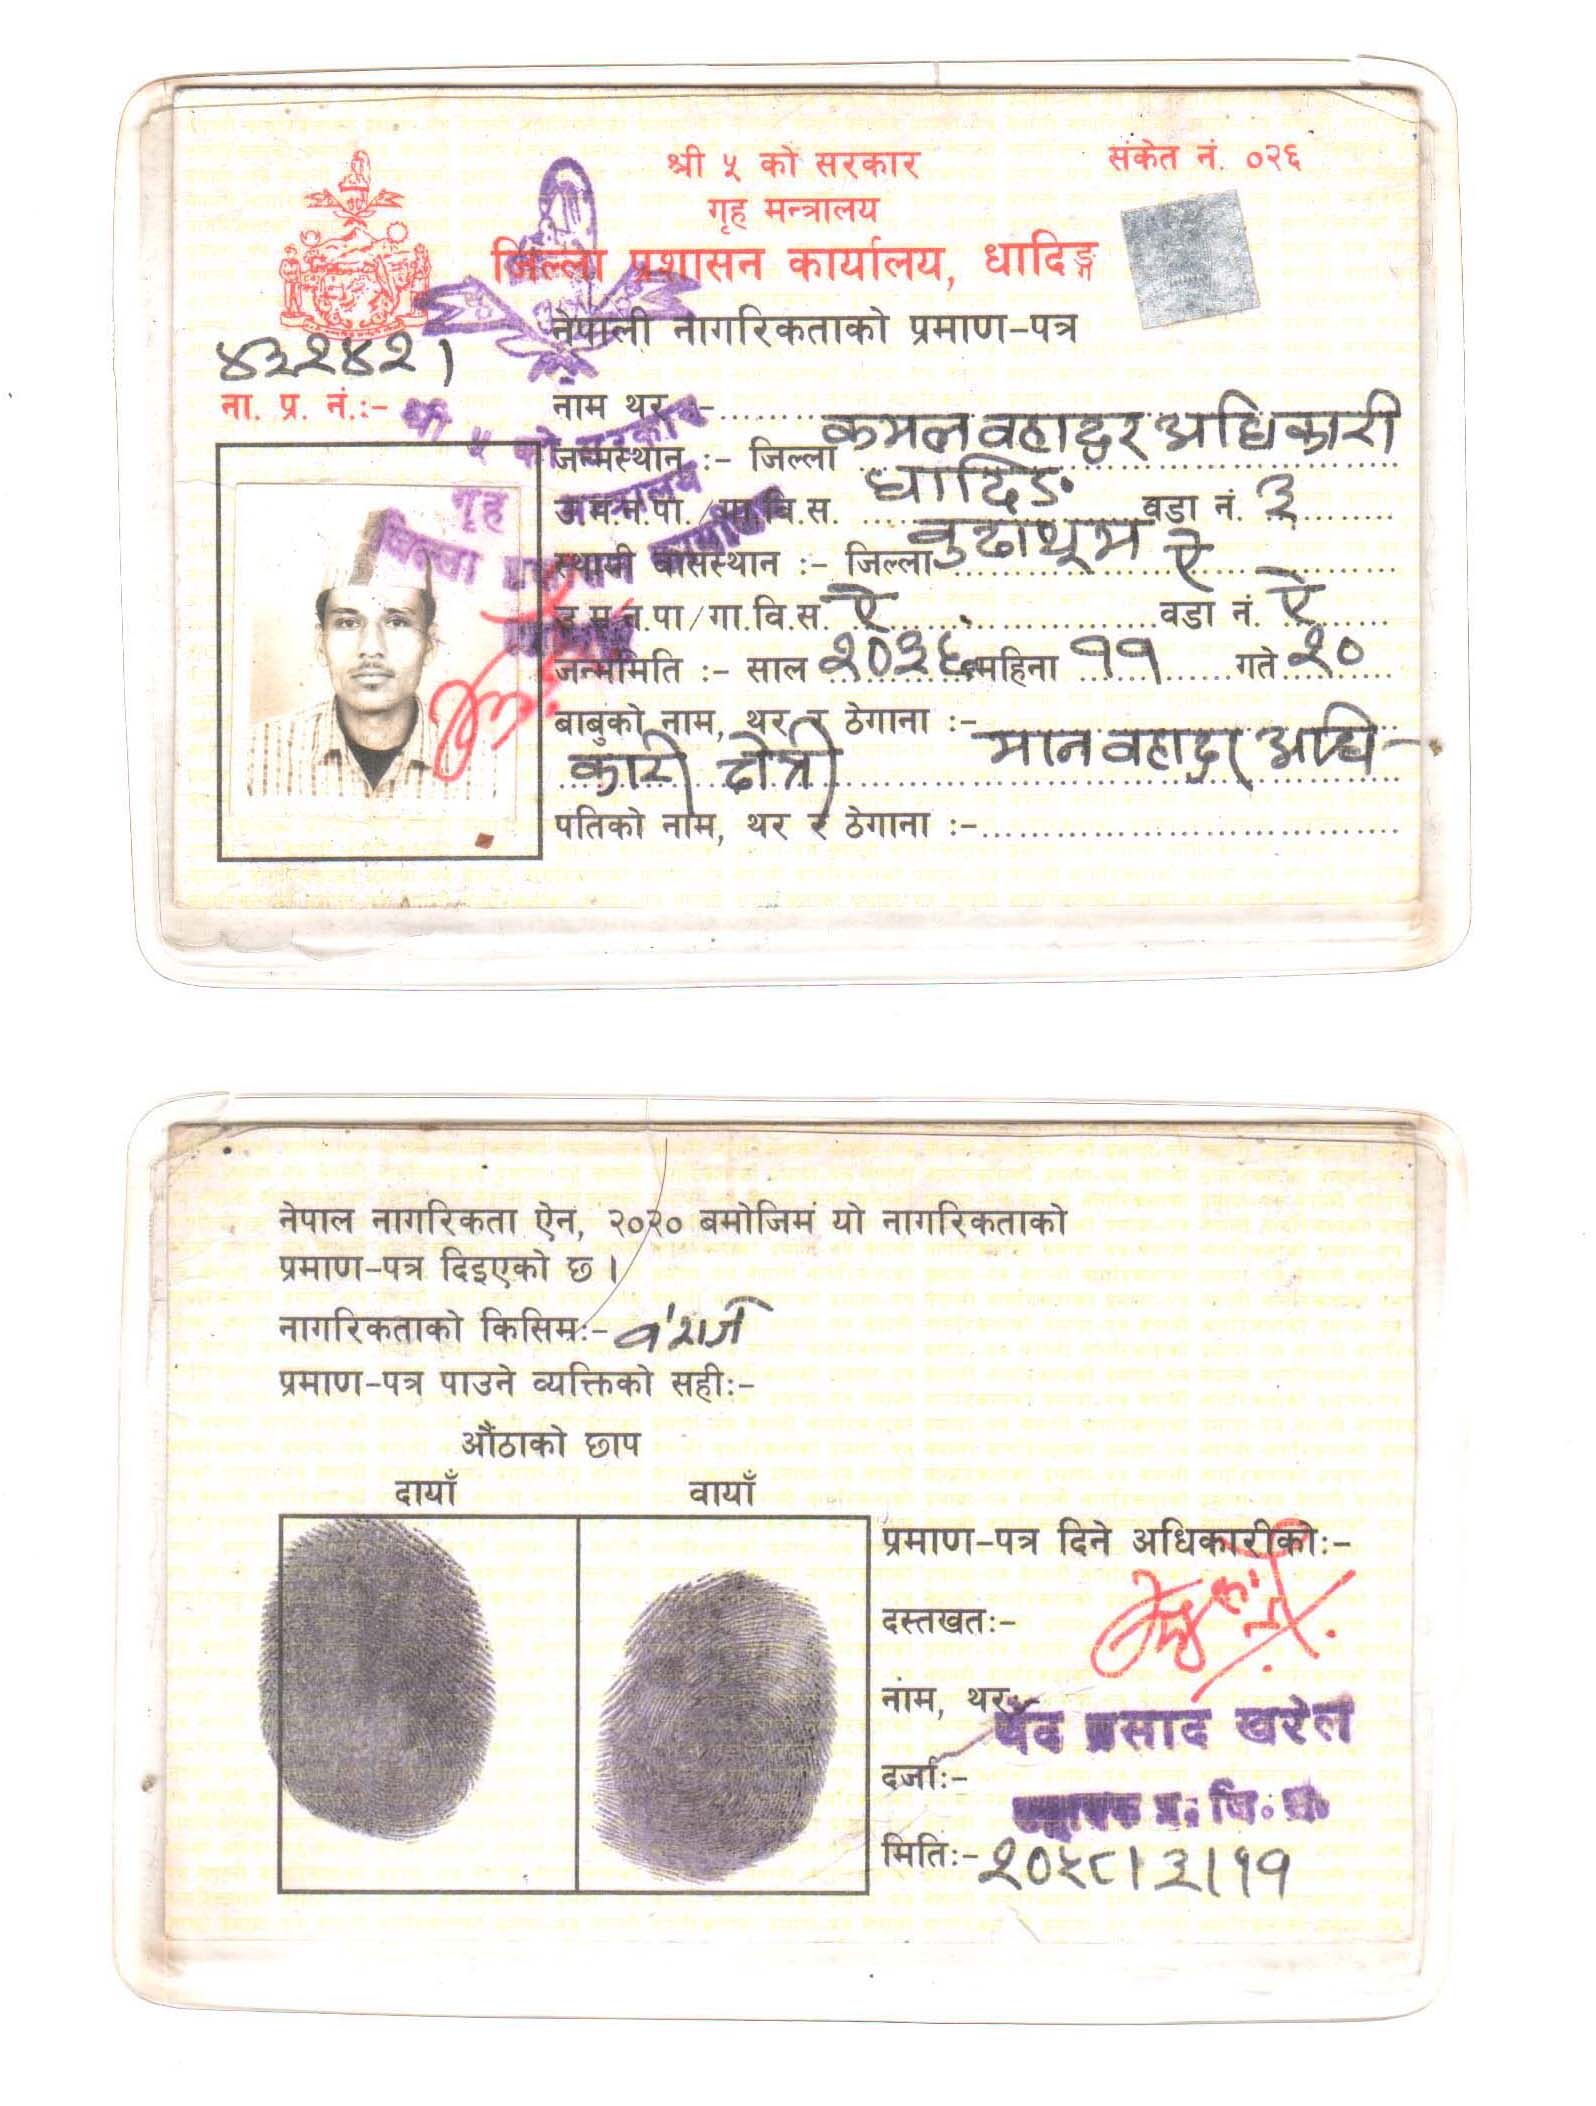 श्री ५ को सरकार
संकेत नं. ०२६
गृह मन्त्रालय
जिल्ला प्रशासन कार्यालय, धादिङ्ग
नेपाली नागरिकताको प्रमाण-पत्र
४३२४२१
ना. प्र. नं.:-
नाम थर :- कमल वहादुर अधिकारी
जन्मस्थान :- जिल्ला धादिङ
उ.म.न.पा./गा.वि.स. वुढाथुम वडा नं. ३
स्थायी बासस्थान :- जिल्ला ऐ
उ.म.न.पा/गा.वि.स. ऐ वडा नं. ऐ
जन्ममिति :- साल २०३६ महिना ११ गते २०
बाबुको नाम, थर र ठेगाना :- मान वहादुर अधि-
कारी
पतिको नाम, थर र ठेगाना :-
श्री ५ को सरकार
गृह मन्त्रालय
जिल्ला
नेपाल नागरिकता ऐन, २०२० बमोजिम यो नागरिकताको
प्रमाण-पत्र दिइएको छ।
नागरिकताको किसिम:- वंशज
प्रमाण-पत्र पाउने व्यक्तिको सही:-
औंठाको छाप
दायाँ वायाँ
प्रमाण-पत्र दिने अधिकारीको:-
दस्तखत:-
नाम, थर:- प्रसाद खरेल
दर्जा:- प्र. जि. अ.
मिति:- २०५८।३।११